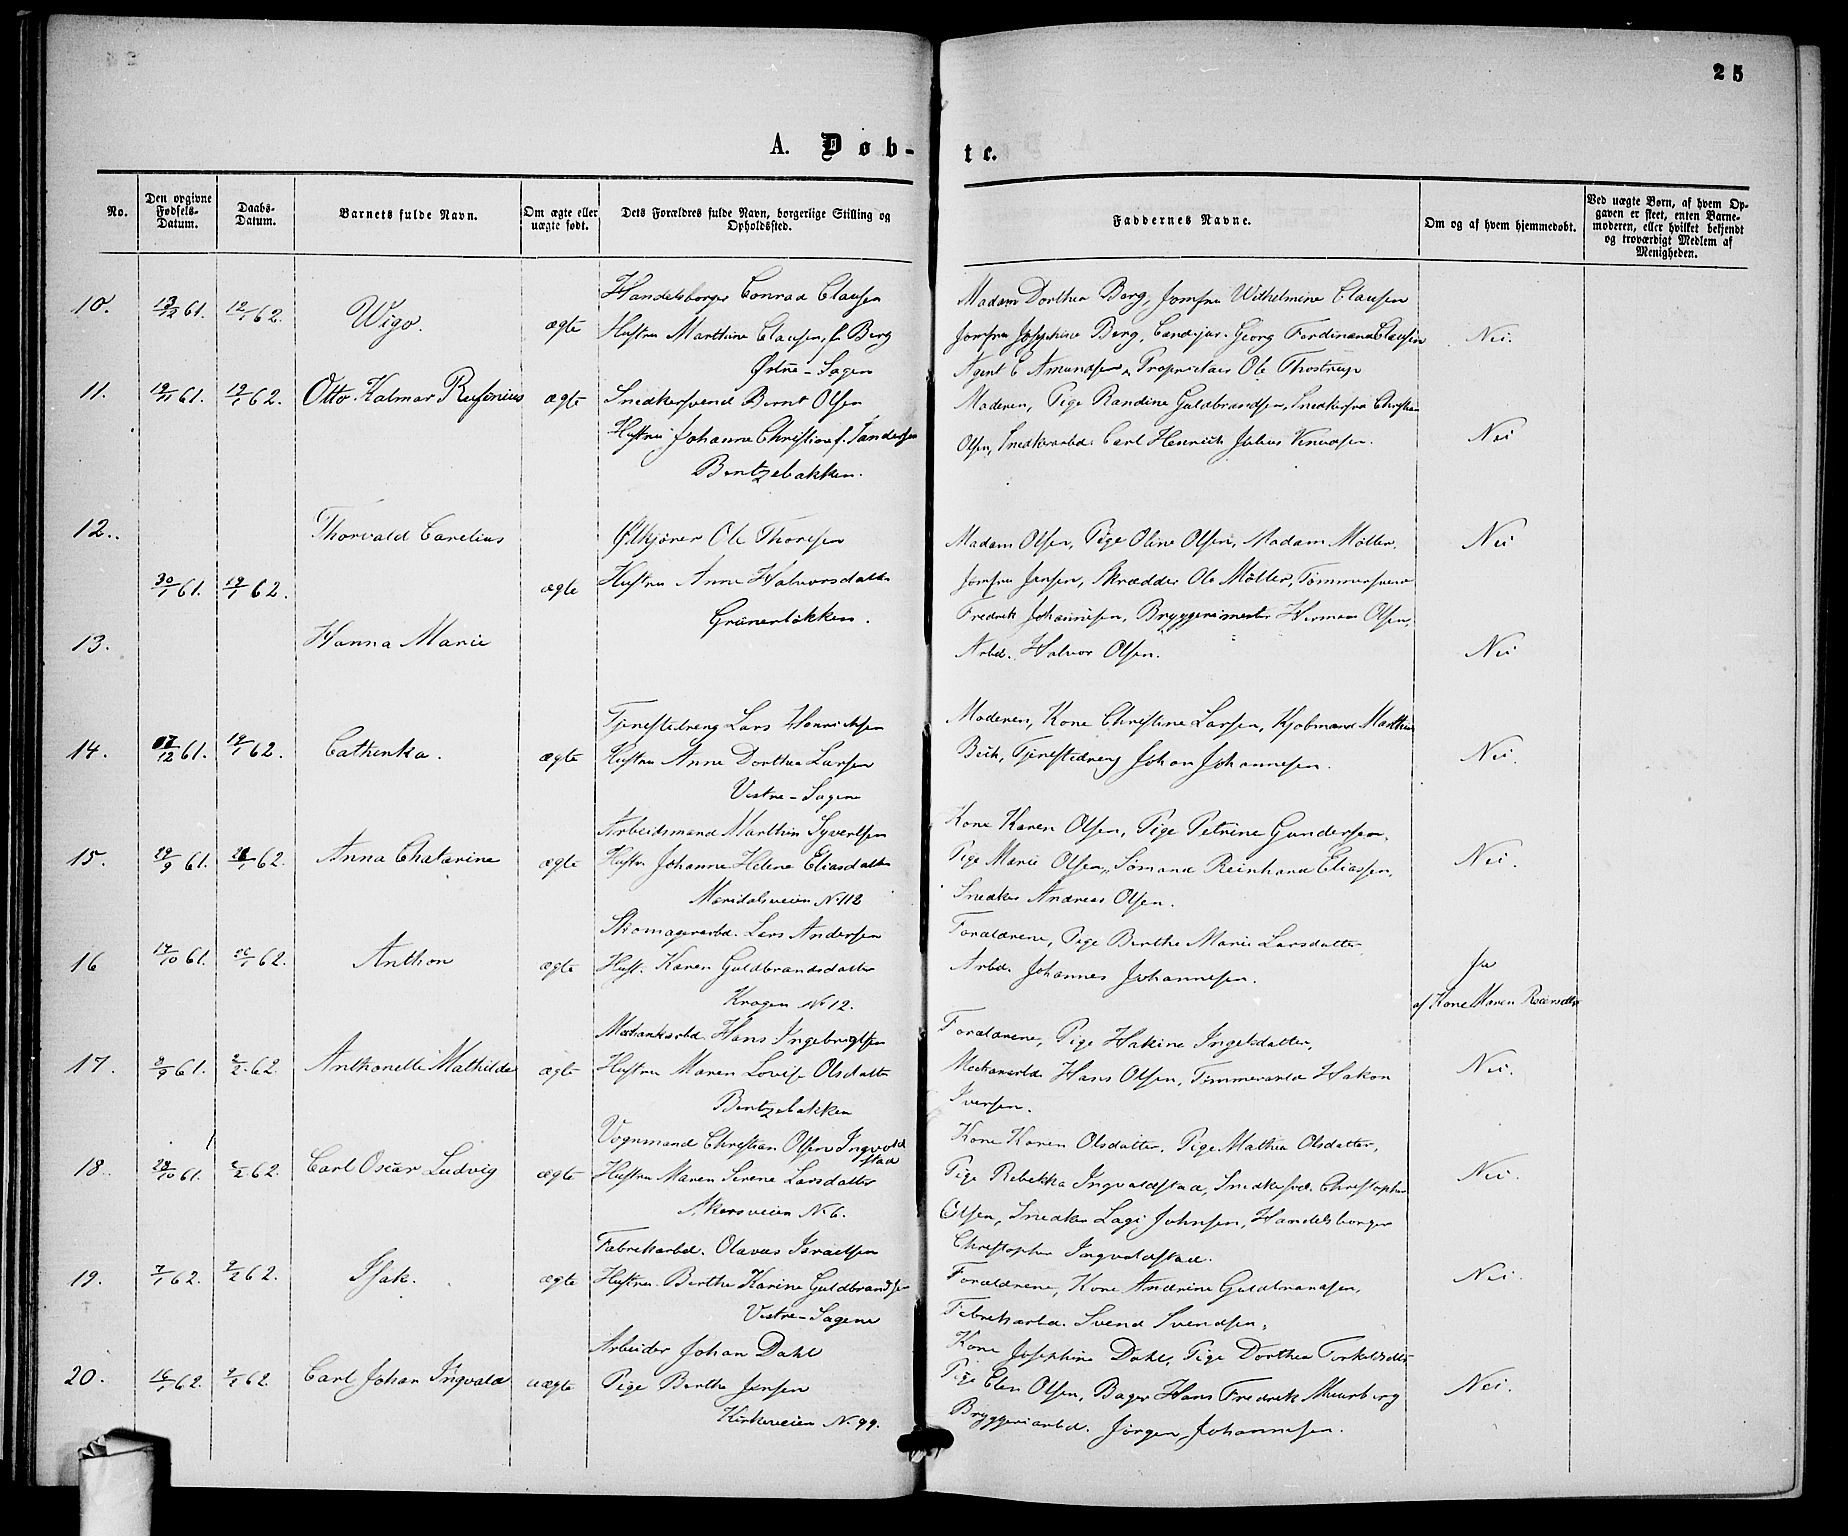 25
A. Døb-
te.
No.
Den opgivne Fødsels-Datum.
Daabs-Datum.
Barnets fulde Navn.
Om ægte eller uægte født.
Dets Forældres fulde Navn, borgerlige Stilling og Opholdssted.
Faddernes Navne.
Om og af hvem hjemmedøbt.
Ved uægte Børn, af hvem Opgaven er skeet, enten Barnemoderen, eller hvilket bekjendt og troværdigt Medlem af Menigheden.
10. 13/12 61. 12/1 62. Wigo. ægte
Handelsborger Conrad Clausen
Hustru Marthine Clausen, f. Berg
Østre-Sagen
Madam Dorthea Berg, Jomfru Wilhelmine Clausen
Jomfru Josephine Berg, Cand. jur. Georg Ferdinand Clausen
Agent C Amundsen, Proprietair Ole Thostrup
Nei.
11. 19/11 61. 19/1 62. Otto Halmar Rufinius ægte
Snedkersvend Bernt Olsen
Hustru Johanne Christine f. Sandersen
Bentzebakken.
Moderen, Pige Randine Guldbrandsen, Snedkerfru Christian
Olsen, Snedkerarbd. Carl Henrich Julius
Nei
12. Thorvald Carelius
Ølkjører Ole Thoresen
Madam Olsen, Pige Oline Olsen, Madam Møller,
Nei
30/1 61. 19/1 62. ægte
Hustru Anne Halvorsdatter
Grünerløkken.
Jomfru Jensen, Skrædder Ole Møller, Tømmersvend
Fredrik Johannesen, Bryggerimester Herman Olsen,
13. Hanna Marie
Arbd. Halvor Olsen.
Nei
14. 17/12 61. 19/1 62. Cathinka. ægte
Tjenestedreng Lars Henriksen
Hustru Anne Dorthea Larsen
Vestre-Sagene
Moderen, Kone Christine Larsen, Kjøbmand Marthin
Beck, Tjenestedreng Johan Johannesen.
Nei.
15. 29/9 61. 62. Anna Chatarine ægte
Arbeidsmand Marthin Syvertsen
Hustru Johanne Helene Eliasdatter
Maridalsveien No 112
Kone Karen Olsen, Pige Petrine Gundersen,
Pige Marie Olsen, Sømand Reinhard Eliassen,
Snedker Andreas Olsen.
Nei.
16 14/10 61. 26/1 62. Anthon ægte
Skomagerarbd. Lars Andersen
Hust. Karen Guldbrandsdatter
Kragen No 12.
Forældrene, Pige Berthe Marie Larsdatter
Arbd. Johannes Johannesen.
Ja
af Kone Maren Reiersdtr
17. 2/9 61. 2/2 62. Anthonette Mathilde ægte
Mechanikarbd. Hans Ingebrigtsen
Hustru Maren Lovise Olsdatter
Bentzebakken
Forældrene, Pige Hakine Ingelsdatter,
Mechanarbd. Hans Olsen, Tømmerarbd Hakon
Iversen.
Nei.
18. 28/10 61. 2/2 62. Carl Oscar Ludvig ægte
Vognmand Christian Olsen Ingvold
stad
Hustru Maren Serene Larsdatter
Akersveien No 6.
Kone Karen Olsdatter, Pige Mathea Olsdatter,
Pige Rebekka Ingvaldstad, Snedkersvd. Christopher
Olsen, Snedker Lage Johnsen, Handelsborger
Christopher Ingvaldstad.
Nei.
19. 7/1 62. 2/2 62. Isak. ægte
Fabrikarbd. Olavus Israelsen
Hustru Berthe Karine Guldbrandsen
Vestre-Sagene
Forældrene, Kone Andrine Guldbrandsen,
Fabrikarbd. Svend Svendsen,
Nei.
20. 16/1 62. 2/2 62. Carl Johan Ingvald uægte
Arbeider Johan Dahl
Pige Berthe Jensen
Kirkeveien No 99.
Kone Josephine Dahl, Pige Dorthea Torkelsdtr
Pige Elen Olsen, Bager Hans Fredrik Muurberg
Bryggeriarbd. Jørgen Johannesen.
Nei.